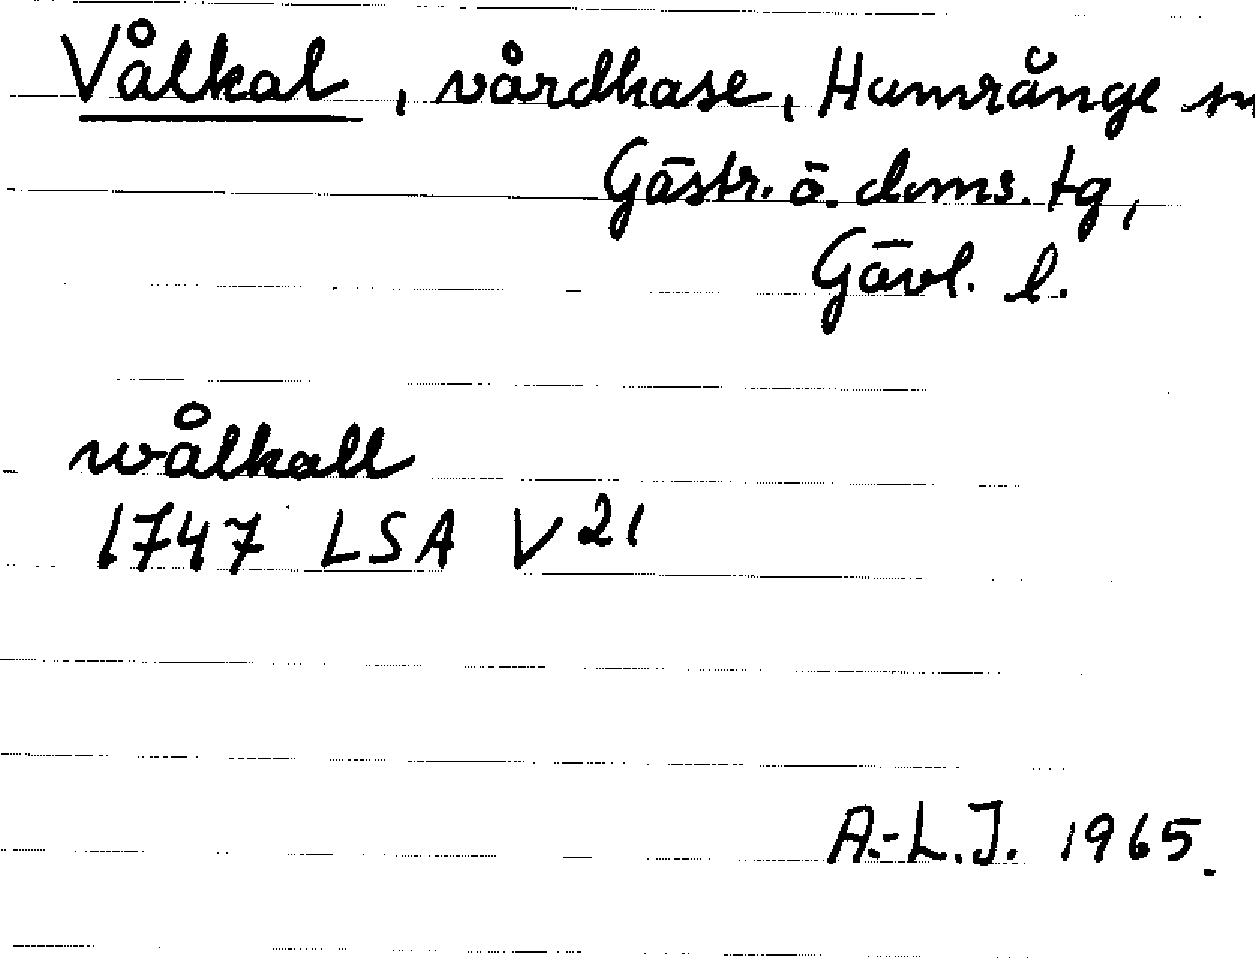 Vålkal, vårdkase, Hamrånge sn
Gästr. ö. doms. tg,
Gävl. l.
wålkall
1747 LSA V 21
A.-L.J. 1965.